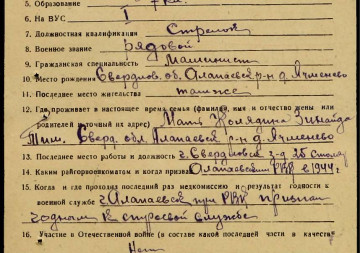 5. Образование 7 кл.
6. На ВУС I
7. Должностная квалификация Стрелок
8. Военное звание Рядовой
9. Гражданская специальность Машинист
10. Место рождения Свердлов. об. Алапаевск р-н д. Ячменево
11. Последнее место жительства также
12. Где проживает в настоящее время семья (фамилия, имя и отчество жены или
родителей и точный их адрес) Мать Колядина Зинаида
Тим. Сверд. обл Алапаевск р-н д. Ячменево
13. Последнее место работы и должность г. Свердловск з-д 25
14. Каким райгорвоенкоматом и когда призван Алапаевским РВК в 1944 г
15. Когда и где проходил последний раз медкомиссию результат годности к
военной службе г. Алапаевск при РВК признан
годным к строевой службе
16. Участие в Отечественной войне (в составе какой последней части в качестве
Нет